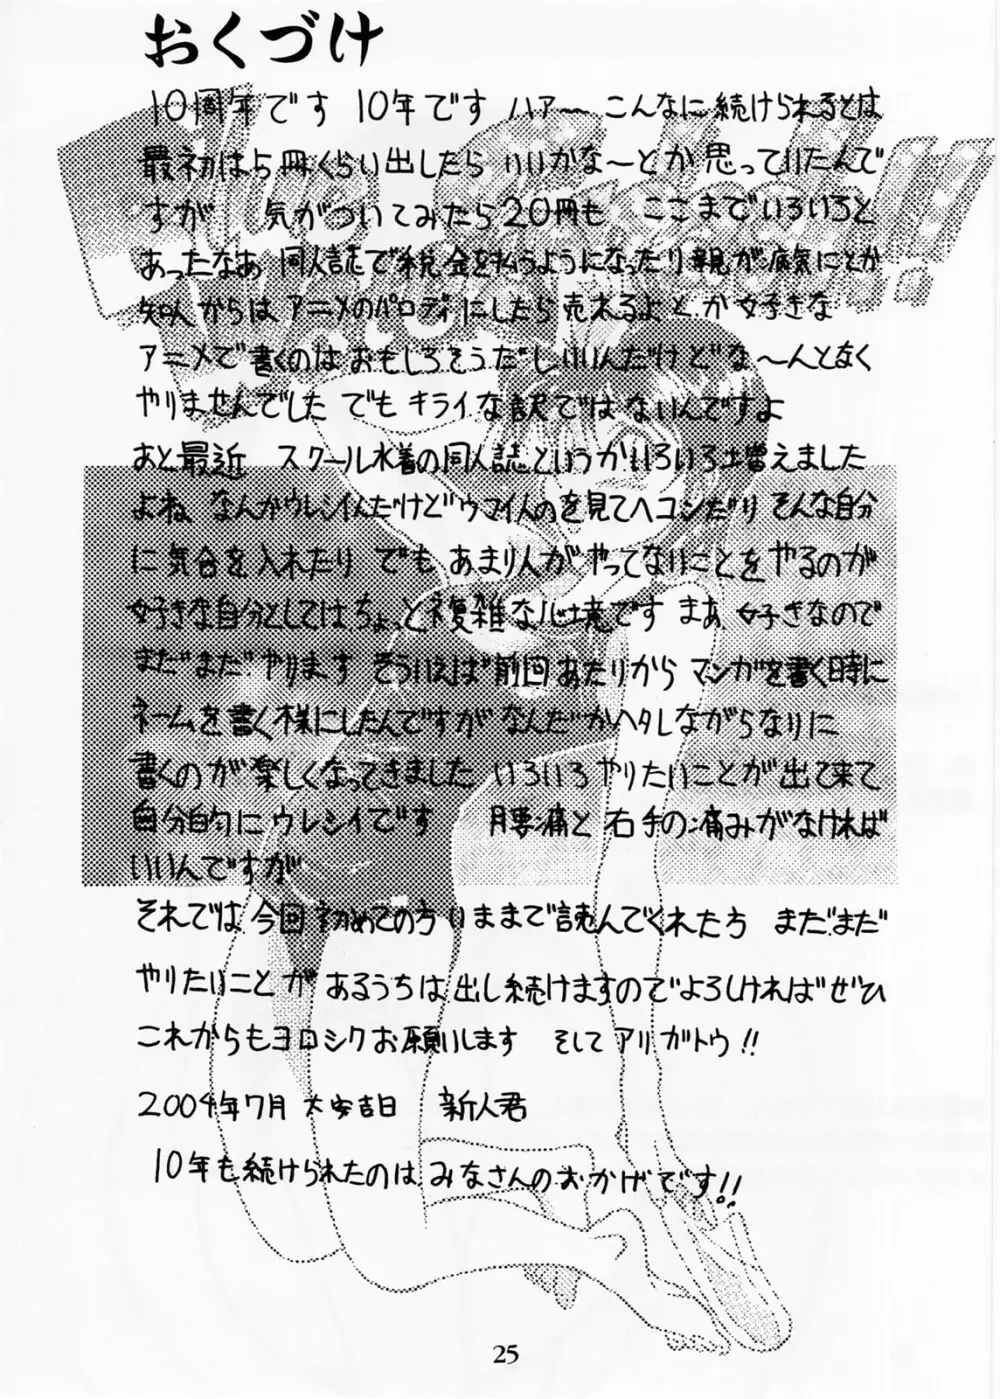 おくづけ
10周年です 10年です ハァ〜 こんなに続けられるとは
最初は5冊くらい出したら いいかな〜とか思っていたんで
すが 気がついてみたら20冊も ここまでいろいろと
あったなあ 同人誌で税金を払うようになったり親が病気にとか
知人からは アニメのパロディにしたら売れるよとか 好きな
アニメで書くのはおもしろそうだしいいんだけどな〜んとなく
やりませんでした でもキライな訳ではないんですよ
あと最近 スクール水着の同人誌というかいろいろ増えました
よね なんかウレシイんだけどウマイ人のを見てヘコンだり そんな自分
に気合を入れたり でも あまり人がやってないことをやるのが
好きな自分としてはちょっと複雑な心境です まあ 好きなので
まだまだやります そういえば前回あたりから マンガを書く時に
ネームを書く様にしたんですがなんだかヘタしながらなりに
書くのが楽しくなってきました いろいろやりたいことが出て来て
自分的にウレシイです 腰痛と右手の痛みがなければ
いいんですが
それでは今回初めての方 いままで読んでくれた方 まだまだ
やりたいことが あるうちは出し続けますのでよろしければぜひ
これからもヨロシクお願いします そしてアリガトウ!!
2004年7月大安吉日 新人君
10年も続けられたのはみなさんのおかげです!!
25